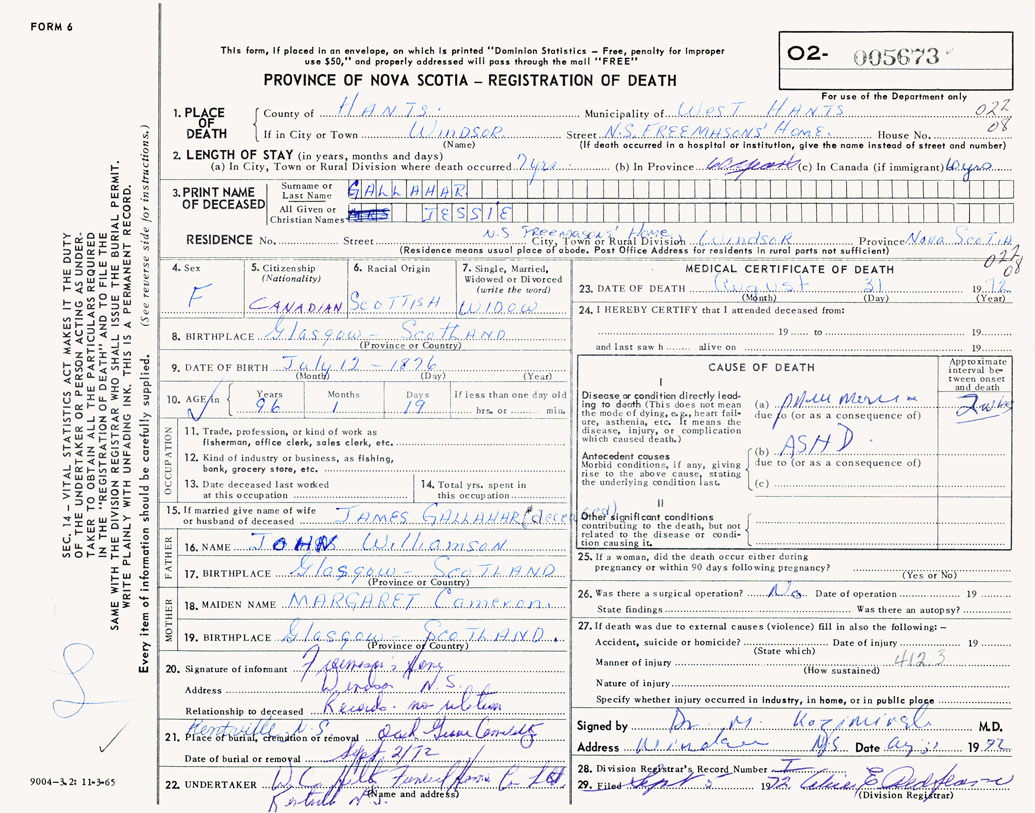 FORM 6
This form, if placed in an envelope, on which is printed "Dominion Statistics – Free, penalty for improper
use $50," and properly addressed will pass through the mail "FREE"
PROVINCE OF NOVA SCOTIA – REGISTRATION OF DEATH
O2- 005673
For use of the Department only
SEC. 14 – VITAL STATISTICS ACT MAKES IT THE DUTY
OF THE UNDERTAKER OR PERSON ACTING AS UNDER-
TAKER TO OBTAIN ALL THE PARTICULARS REQUIRED
IN THE "REGISTRATION OF DEATH" AND TO FILE THE
SAME WITH THE DIVISION REGISTRAR WHO SHALL ISSUE THE BURIAL PERMIT.
WRITE PLAINLY WITH UNFADING INK. THIS IS A PERMANENT RECORD.
Every item of information should be carefully supplied. (See reverse side for instructions.)
1. PLACE OF DEATH
County of HANTS. Municipality of WEST HANTS 022
08
If in City or Town WINDSOR Street N.S. FREEMASONS' HOME. House No.
(Name) (If death occurred in a hospital or institution, give the name instead of street and number)
2. LENGTH OF STAY (in years, months and days)
(a) In City, Town or Rural Division where death occurred 7 yrs. (b) In Province (c) In Canada (if immigrant) yrs
3. PRINT NAME OF DECEASED
Surname or Last Name GALLAHAR
All Given or Christian Names MRS JESSIE
N.S. Freemasons' Home,
RESIDENCE No. Street City, Town or Rural Division Windsor Province Nova Scotia
(Residence means usual place of abode. Post Office Address for residents in rural parts not sufficient)
022
08
4. Sex F
5. Citizenship (Nationality) CANADIAN
6. Racial Origin SCOTTISH
7. Single, Married, Widowed or Divorced (write the word) WIDOW
8. BIRTHPLACE Glasgow – Scotland
(Province or Country)
9. DATE OF BIRTH July 12 – 1876
(Month) (Day) (Year)
10. AGE in Years 96 Months 1 Days 19 If less than one day old hrs. or min.
OCCUPATION
11. Trade, profession, or kind of work as
fisherman, office clerk, sales clerk, etc.
12. Kind of industry or business, as fishing,
bank, grocery store, etc.
13. Date deceased last worked
at this occupation
14. Total yrs. spent in
this occupation
15. If married give name of wife
or husband of deceased JAMES GALLAHAR (deceased)
FATHER
16. NAME JOHN Williamson
17. BIRTHPLACE Glasgow – SCOTLAND
(Province or Country)
MOTHER
18. MAIDEN NAME MARGARET Cameron.
19. BIRTHPLACE Glasgow – SCOTLAND.
(Province or Country)
20. Signature of informant Freemason's Home
Address Windsor N.S.
Relationship to deceased Records - no relation
Kentville N.S.
21. Place of burial, cremation or removal Oak Grove Cemetery
Date of burial or removal Sept 2/72
22. UNDERTAKER Funeral Home Co. Ltd.
(Name and address)
Kentville N.S.
9004–3.2: 11-3-65
MEDICAL CERTIFICATE OF DEATH
23. DATE OF DEATH August 31 1972
(Month) (Day) (Year)
24. I HEREBY CERTIFY that I attended deceased from:
19 to 19
and last saw h alive on 19
CAUSE OF DEATH
Approximate interval between onset and death
I
Disease or condition directly lead-
ing to death (This does not mean
the mode of dying, e.g., heart fail-
ure, asthenia, etc. It means the
disease, injury, or complication
which caused death.)
(a) pneumonia 2 wks
due to (or as a consequence of)
Antecedent causes
Morbid conditions, if any, giving
rise to the above cause, stating
the underlying condition last.
(b) ASHD.
due to (or as a consequence of)
(c)
II
Other significant conditions
contributing to the death, but not
related to the disease or condi-
tion causing it.
25. If a woman, did the death occur either during
pregnancy or within 90 days following pregnancy?
(Yes or No)
26. Was there a surgical operation? No Date of operation 19
State findings Was there an autopsy?
27. If death was due to external causes (violence) fill in also the following: –
Accident, suicide or homicide? Date of injury 19
(State which)
Manner of injury 412.3
(How sustained)
Nature of injury
Specify whether injury occurred in industry, in home, or in public place
Signed by Dr. M. M.D.
Address Windsor N.S. Date Aug 31 1972
28. Division Registrar's Record Number
29. Filed Sept 5 1972
(Division Registrar)